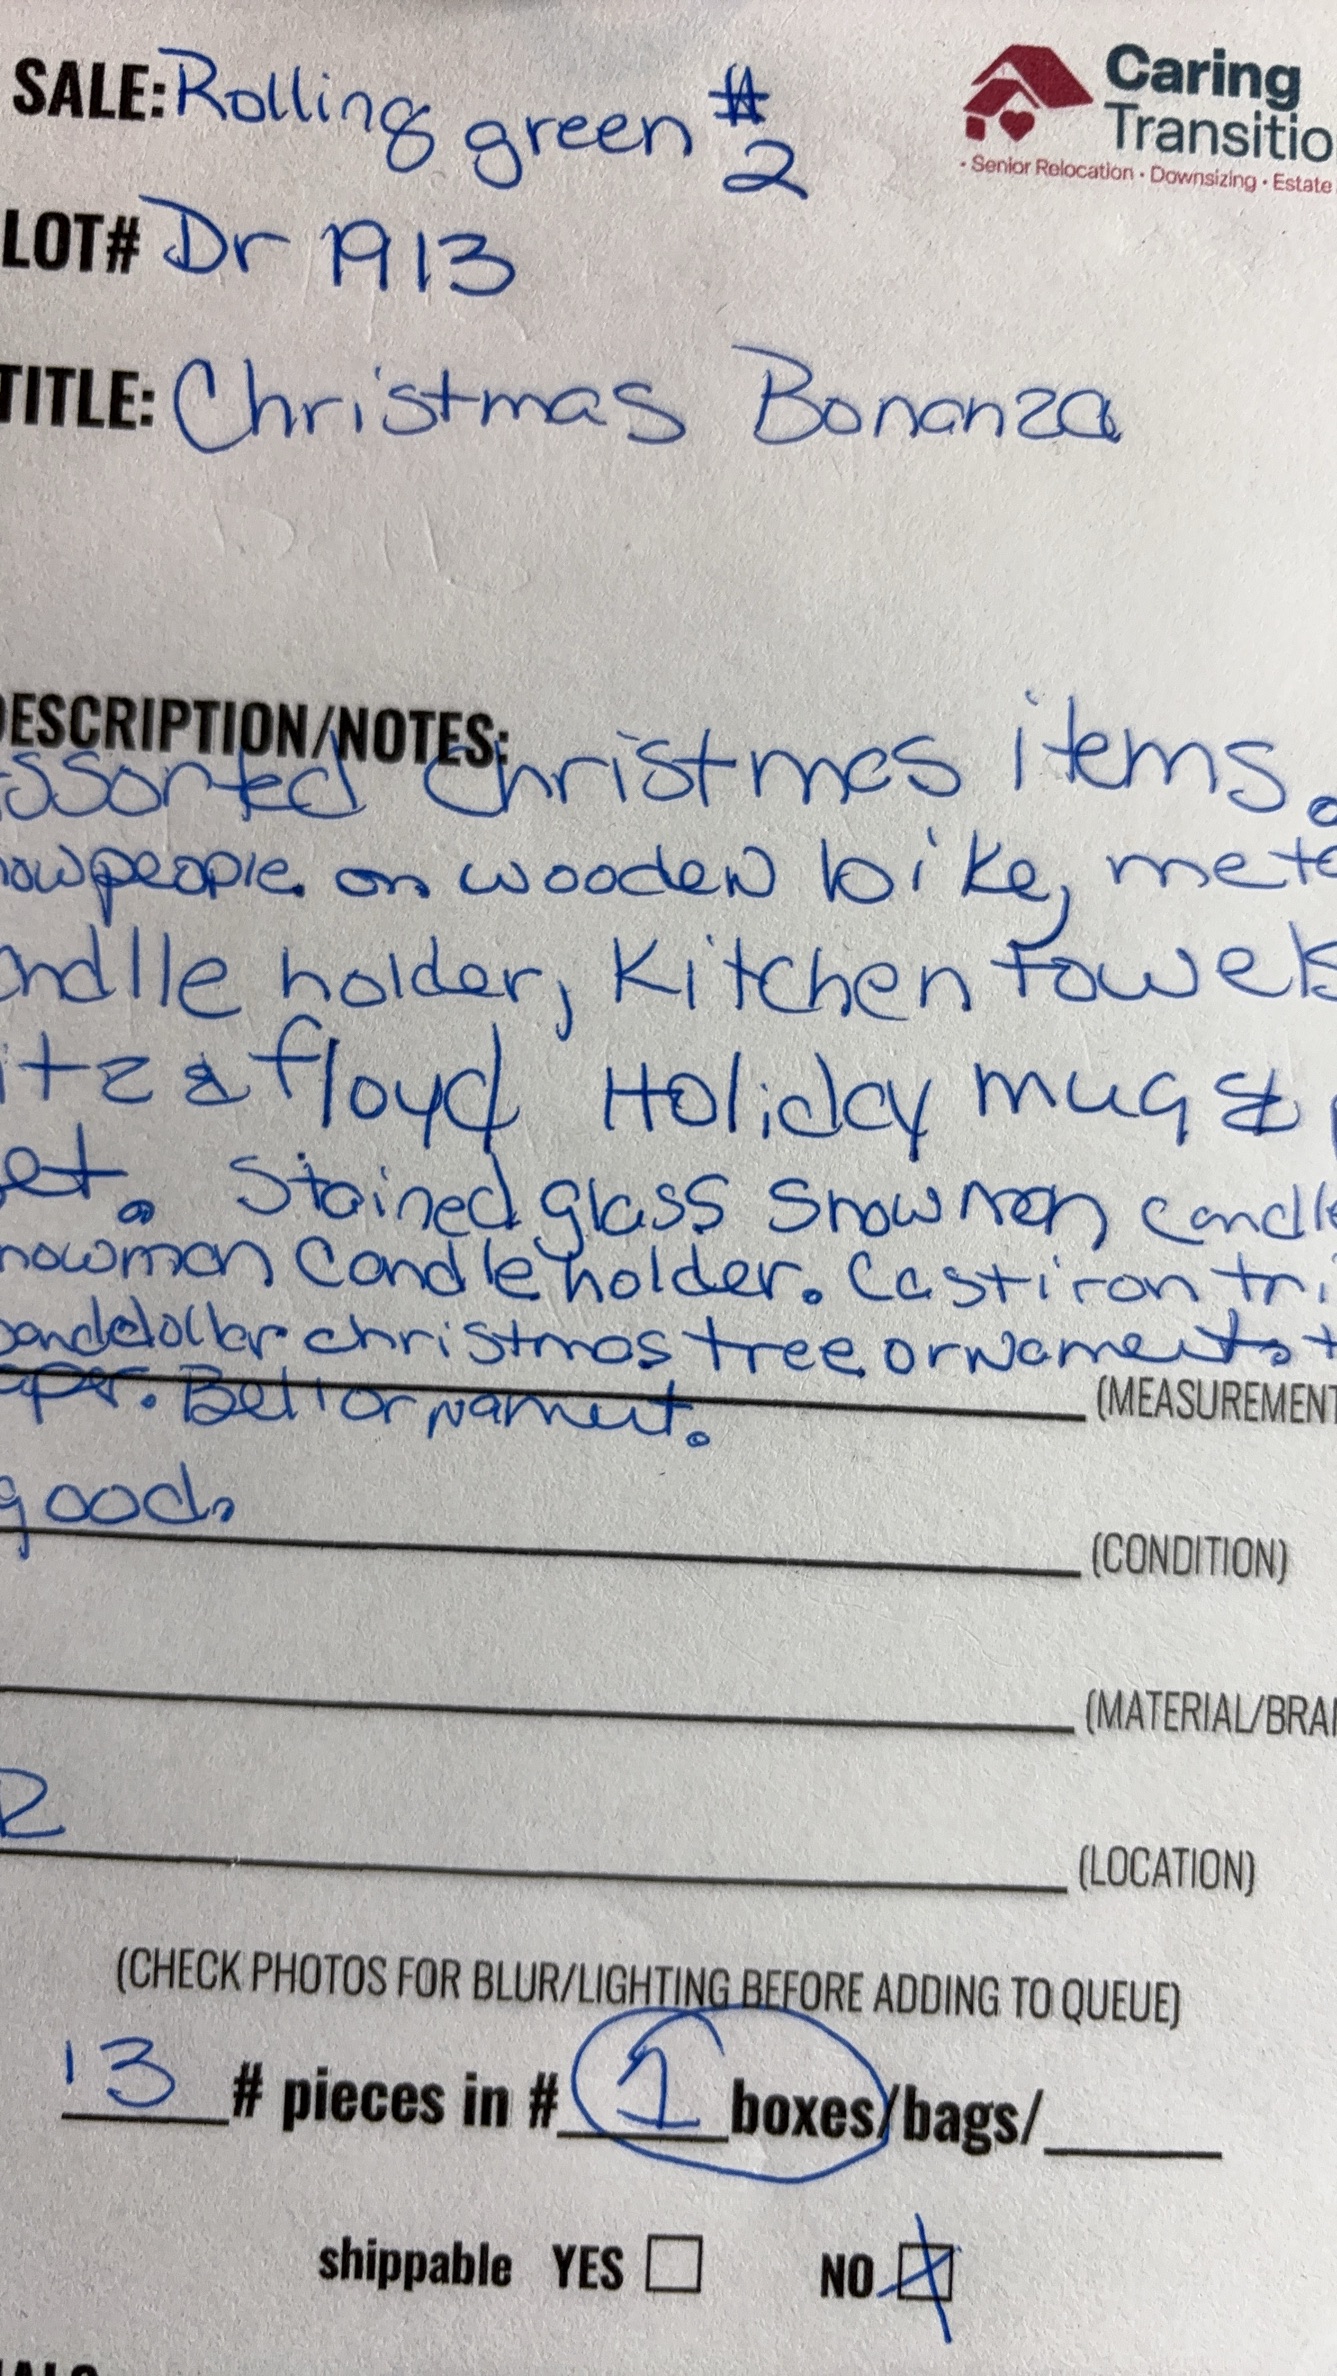 SALE: Rolling green #2
Caring
Transitio
• Senior Relocation • Downsizing • Estate
LOT# Dr 1913
TITLE: Christmas Bonanza
DESCRIPTION/NOTES:
ssorted Christmas items.
nowpeople on wooden bike, meta
andlle holder, Kitchen towels
itz & floyd Holiday mug &
et. Stained glass Snowman candle
nowman Candle holder. Cast iron tri
sanddollar christmas tree ornaments
Bell ornament.
(MEASUREMENT
good.
(CONDITION)
(MATERIAL/BRAN
(LOCATION)
(CHECK PHOTOS FOR BLUR/LIGHTING BEFORE ADDING TO QUEUE)
13 # pieces in # 1 boxes/bags/
shippable YES NO